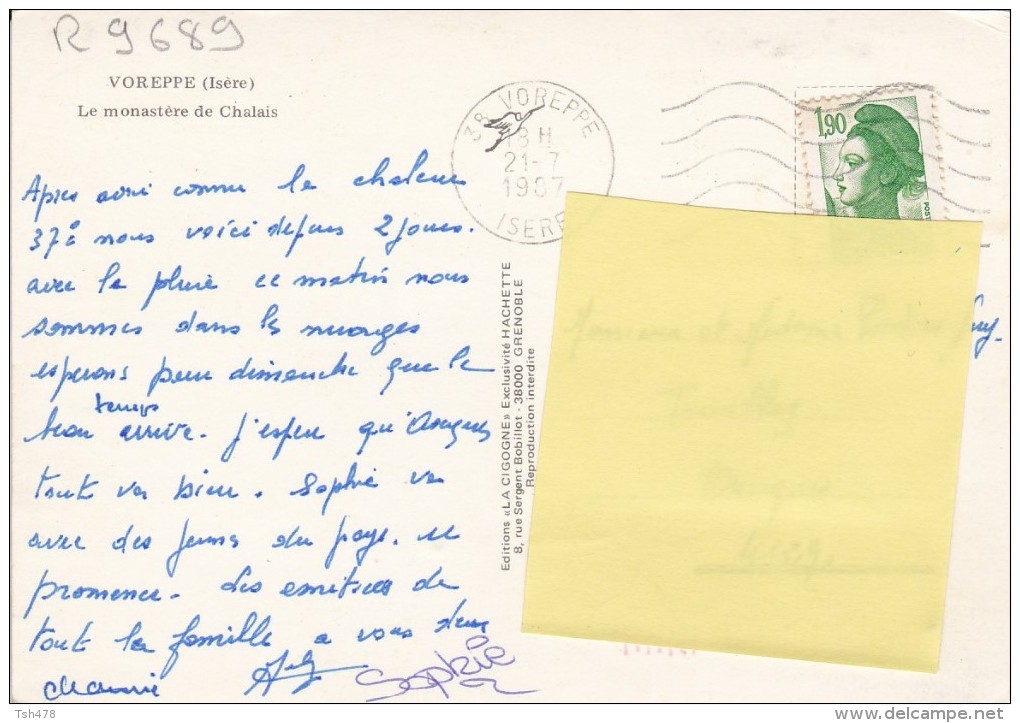 R 9689
VOREPPE (Isère)
Le monastère de Chalais
38 VOREPPE
18 H
21-7
1987
ISERE
1,90
POST
Apres avoir connu la chaleur
37° nous voici depuis 2 jours.
avec la pluie ce matin nous
sommes dans les nuages
esperons pour dimanche que le
temps
beau arrive. J'espere qu'a
tout va bien. Sophie va
avec des jeunes du pays. se
promener. Les amities de
tout la famille a vous deux
Sophie
Editions «LA CIGOGNE» Exclusivité HACHETTE
8, rue Sergent Bobillot - 38000 GRENOBLE
Reproduction interdite
Tsh478
delcampe.net